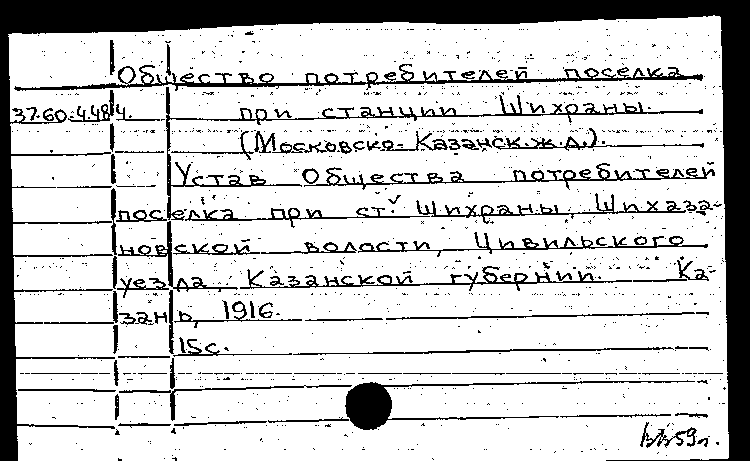 Общество потребителей поселка
37.60.4.484. при станции Шихраны.
(Московско-Казанск.ж.д.).
Устав Общества потребителей
поселка при ст. Шихраны, Шихаза-
новской волости, Цивильского
уезда, Казанской губернии. Ка-
зань, 1916.
15с.